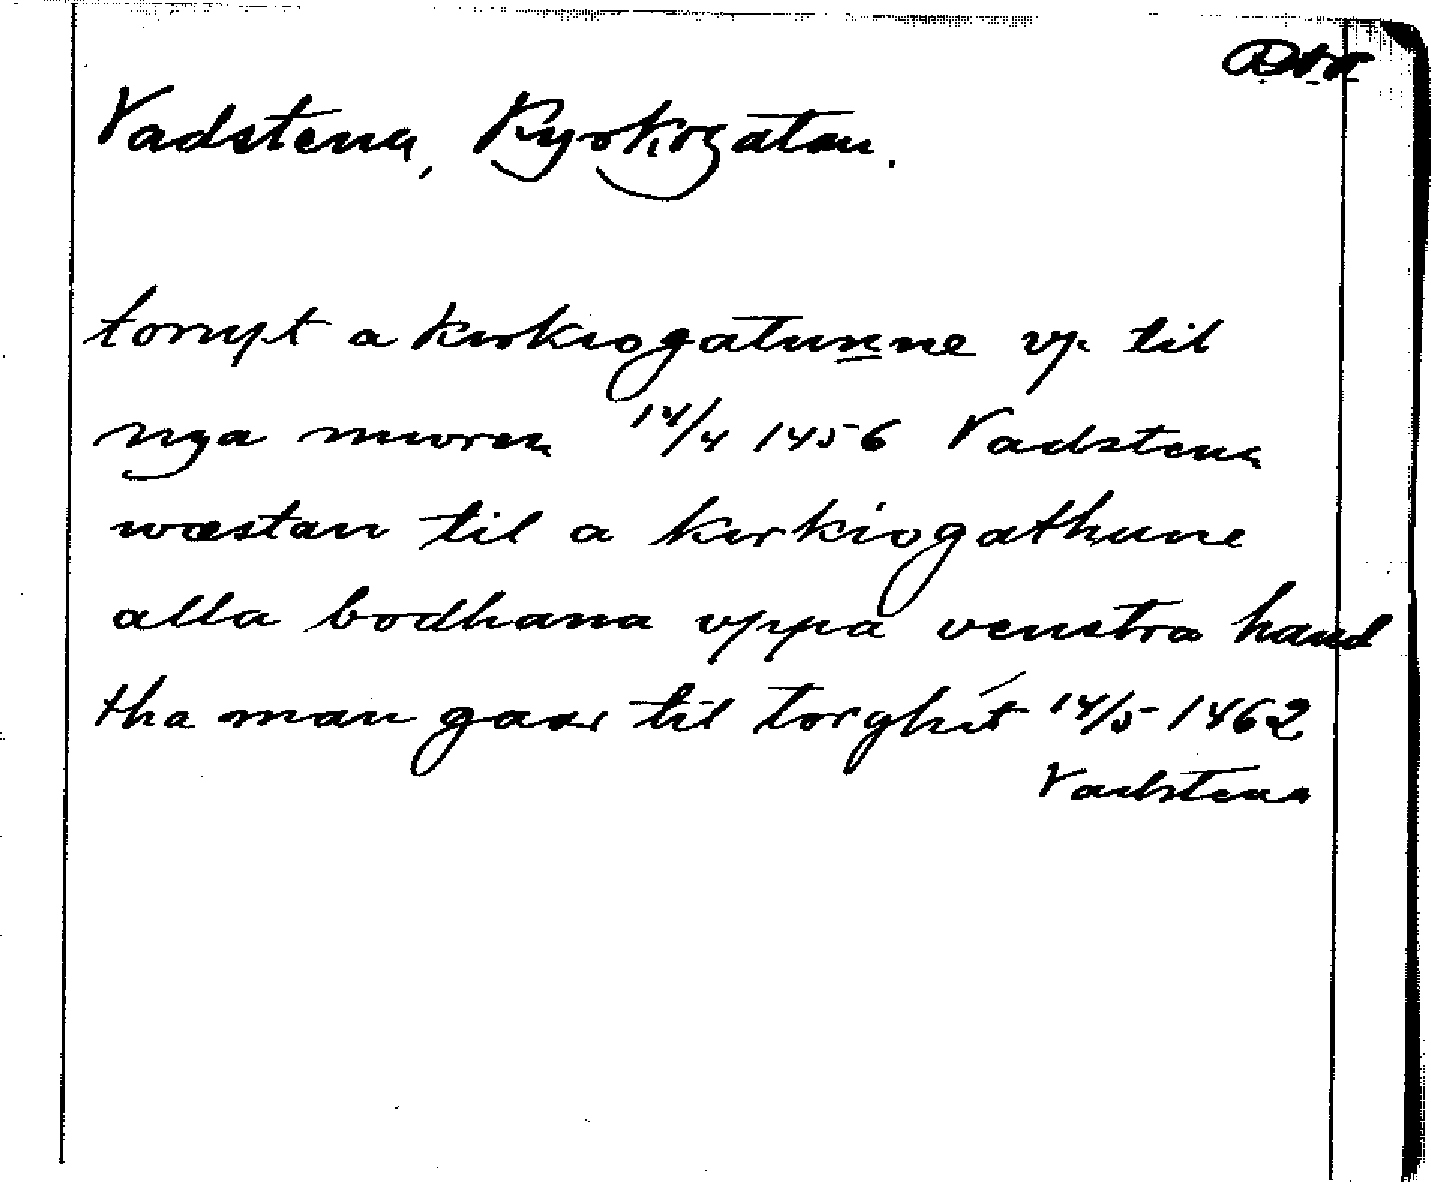 Vadstena, Kyrkogatan.
tompt a kirkiogatunne vp til
nya mwren 14/4 1456 Vadstena
wæstan til a kirkiogathune
alla bodhana vppa venstra hand
tha man gaar til torghit 14/5 1462
Vadstena